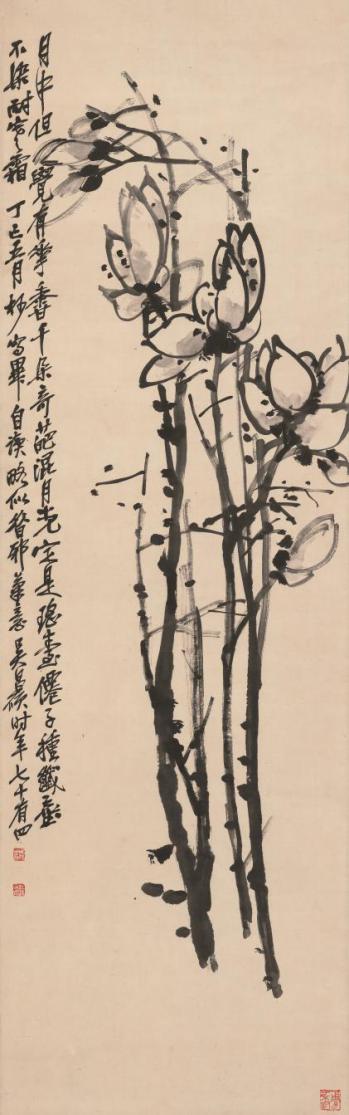 月中但覺有華香千朵奇葩混月光定是瑤臺僊子種纖塵
不染耐寒霜 丁巳五月杪寫畢自讀略似瞀邪筆意吳昌碩時年七十有四